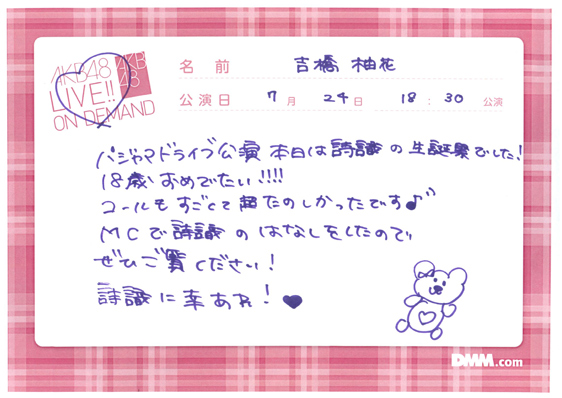 AKB48
LIVE!!
ON DEMAND
AKB
48
名前 吉橋 柚花
公演日 7月 24日 18:30 公演
パジャマドライブ公演 本日は詩識の生誕祭でした!
18歳おめでたい!!!!
コールもすごくて超たのしかったです♪
MCで詩識のはなしをしたので
ぜひご覧ください!
詩識に幸あれ! ♥
DMM.com